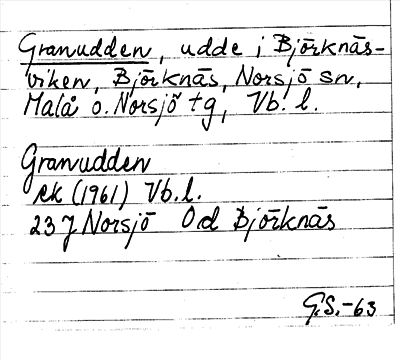 Granudden, udde i Björknäs-
viken, Björknäs, Norsjö sn,
Malå o. Norsjö tg, Vb. l.
Granudden
rk (1961) Vb. l.
23 J Norsjö Od Björknäs
G.S.-63